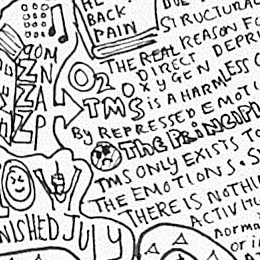 HE
BACK
PAIN
DUE
STRUCTURAL
THE REAL REASON FO
DIRECT DEPRI
OXYGEN
O2
TMS IS A HARMLESS C
BY REPRESSED EMOTI
The PRINCIPL
TMS ONLY EXISTS TO
THE EMOTIONS. S
THERE IS NOTHI
ACTIVI
norma
or i
NISHED JULY